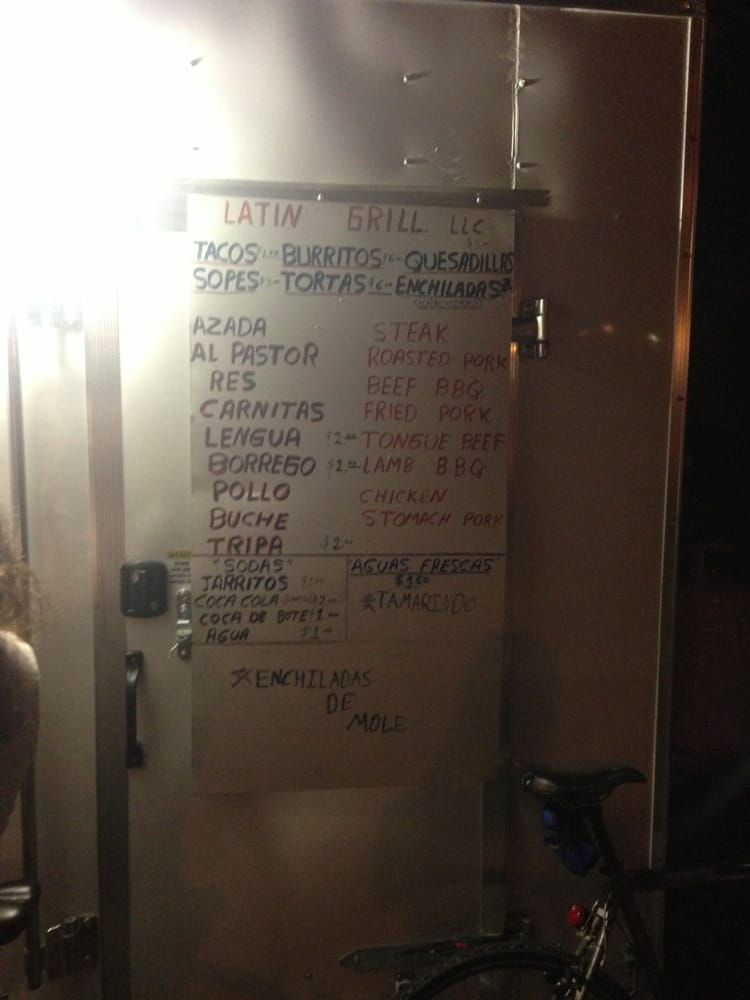 LATIN GRILL. LLC
TACOS BURRITOS $6- QUESADILLAS
SOPES $3- TORTAS $6.00 ENCHILADAS
RANCHERAS
AZADA STEAK
AL PASTOR ROASTED PORK
RES BEEF BBQ
CARNITAS FRIED PORK
LENGUA $2.00 TONGUE BEEF
BORREGO $2.00 LAMB BBQ
POLLO CHICKEN
BUCHE STOMACH PORK
TRIPA $2.00
"SODAS"
JARRITOS
COCA COLA 2.00
COCA DE BOTE 1.00
AGUA $1.00
"AGUAS FRESCAS"
$1.50
*TAMARINDO
☆ENCHILADAS
DE
MOLE